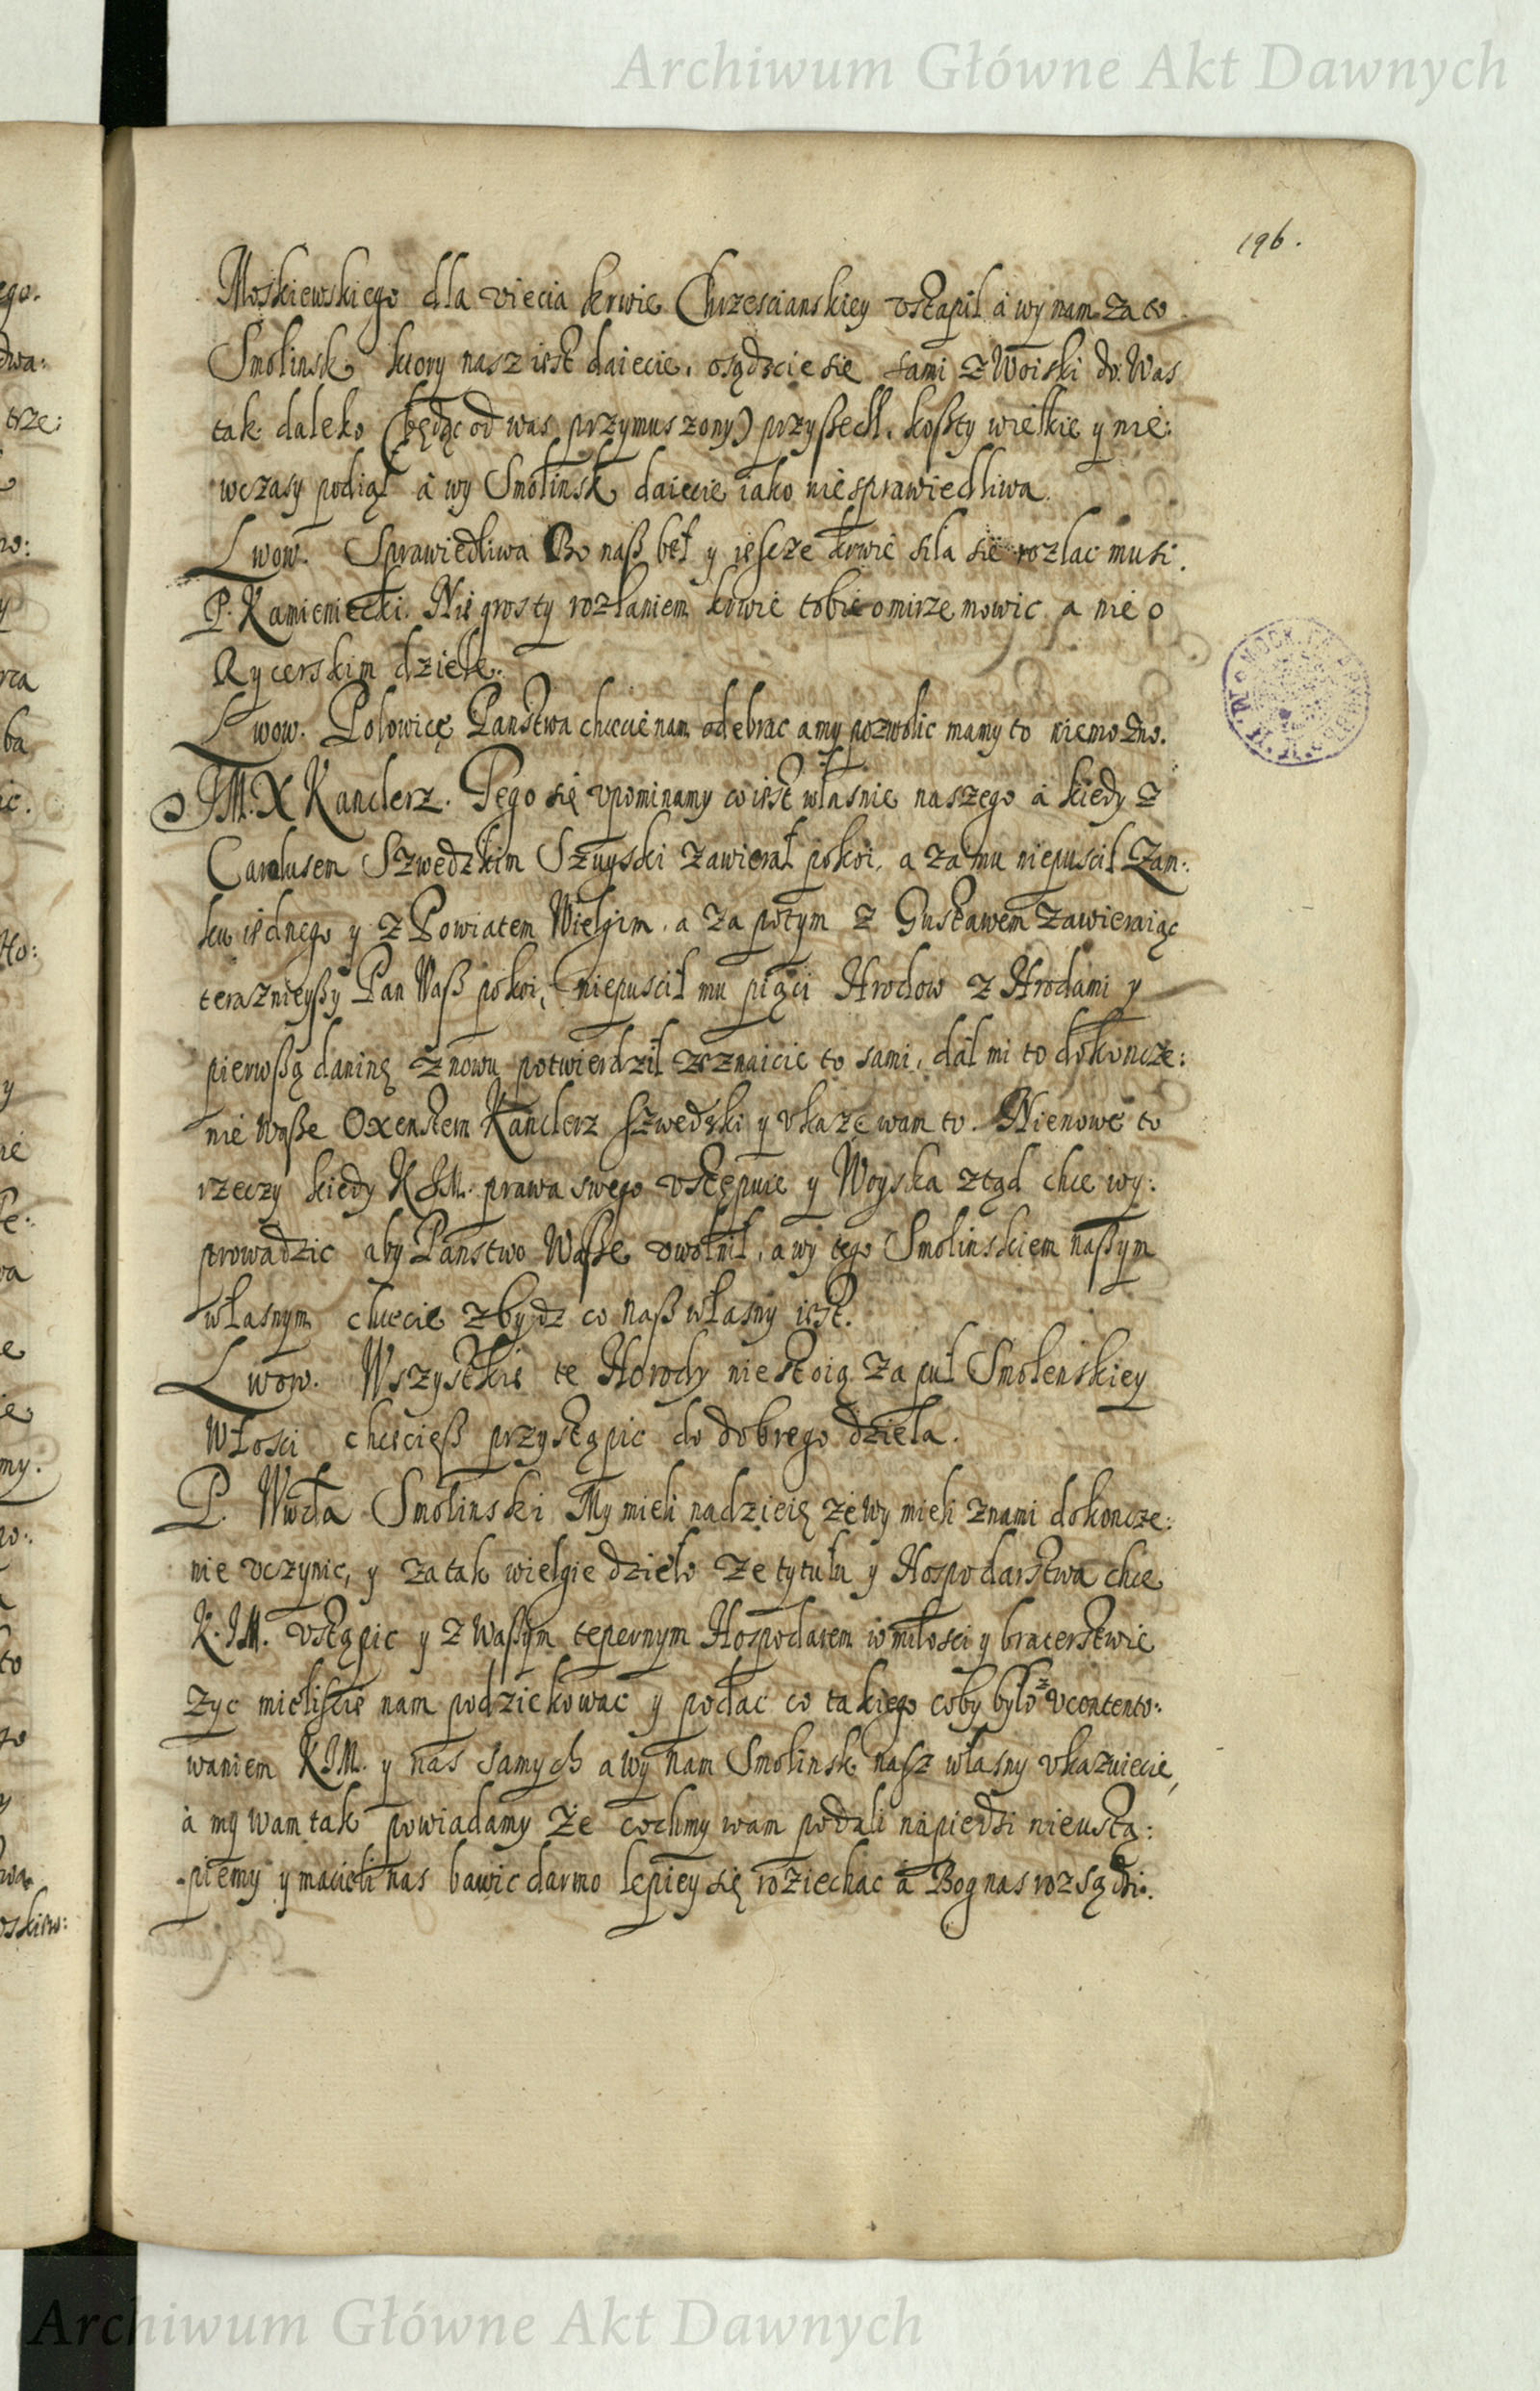 Archiwum Główne Akt Dawnych
196.
Moskiewskiego dla vięcia krwie Chrzescianskiey vstąpił á wy nam za to
Smolinsk, ktory nasz iest daiecie, osądzcie się sami z Woiski do Was
tak daleko (będąc od was przymuszony) przyßedł, koßty wielkie y nie:
wczasy podiął á wy Smolinsk daiecie iako niesprawiedliwa.
Lwow. Sprawiedliwa Bo naß beł y iescze krwie siła się rozlac musi.
P. Kamieniecki. Nie grosty rozlaniem krwie tobie o mirze mowic a nie o
Rycerskim dziele.
Lwow. Polowicę Panstwa chcecie nam odebrac a my pozwolic mamy to niemożno.
JM. X Kanclerz. Tego się vpominamy co iest własnie naszego á kiedy z
Carolusem Szwedzkim Szuyski zawierał pokoi, a za mu niepuscił Zam:
ku iednego y z Powiatem Wielgim, a za potym z Gustawem zawieraiąc
teraznieyßy Pan Waß pokoi, niepuscił mu piąci Hrodow z Hrodami y
pierwßą daninę znowu potwierdził zeznaicie to sami, dał mi to dokoncze:
nie Waße Oxenstern Kanclerz Szwedzki y vkazę wam to. Nienowe to
rzeczy kiedy K JM. prawa swego vstępuie y Woyska ztąd chce wy:
prowadzic aby Panstwo Waße vwolnił, a wy tego Smolinskiem naßym
własnym chcecie zbydz co naß własny iest.
Lwow. Wszystkie te Horody nie stoią za puł Smolenskiey
Włosci chcicieß przystąpic do dobrego dzieła.
P. Wwda Smolinski My mieli nadzieię że wy mieli z nami dokoncze:
nie vczynic, y za tak wielgie dzieło ze tytułu y Hospodarstwa chce
K. JM. vstąpic y z waßym tepernym Hospodarem w miłosci y braterstwie
zyc mieliscie nam podziekowac y podac co takiego coby było z vcontento:
waniem KJM. y nas samych a wy nam Smolinsk nasz własny vkazuiecie,
á my wam tak powiadamy że cochmy wam podali na piedzi nieustą:
piemy y macieli nas bawic darmo lepiey się roziechac á Bog nas rozsądzi.
Archiwum Główne Akt Dawnych